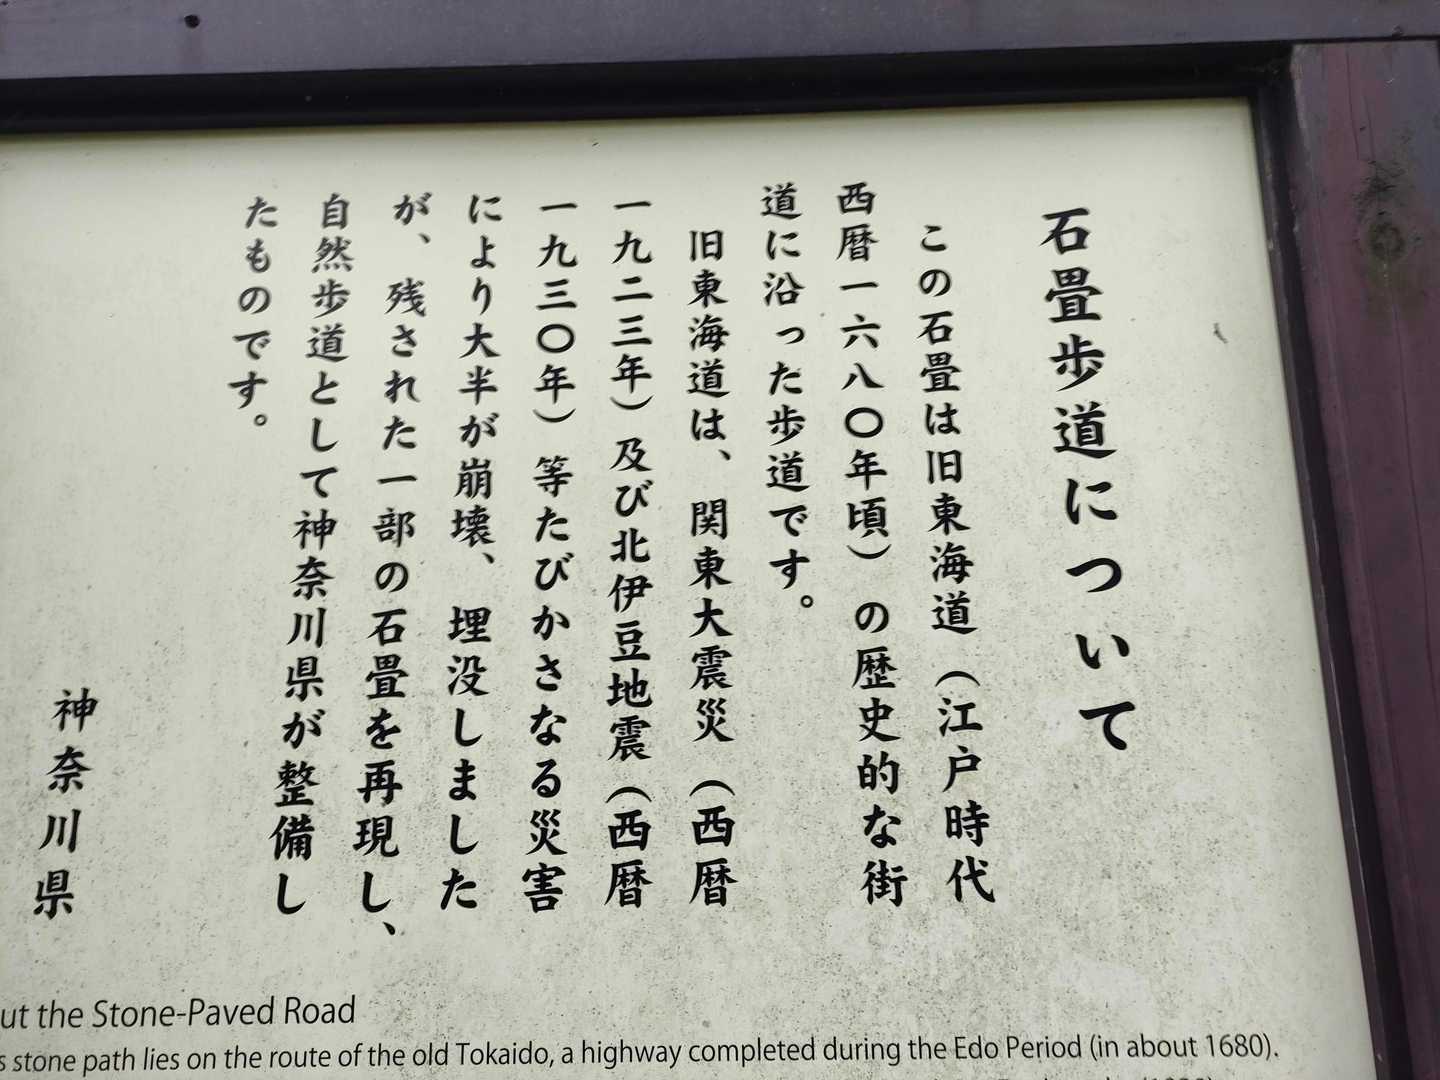 石畳歩道について
この石畳は旧東海道（江戸時代
西暦一六八〇年頃）の歴史的な街
道に沿った歩道です。
旧東海道は、関東大震災（西暦
一九二三年）及び北伊豆地震（西暦
一九三〇年）等たびかさなる災害
により大半が崩壊、埋没しました
が、残された一部の石畳を再現し、
自然歩道として神奈川県が整備し
たものです。
神奈川県
ut the Stone-Paved Road
s stone path lies on the route of the old Tokaido, a highway completed during the Edo Period (in about 1680).